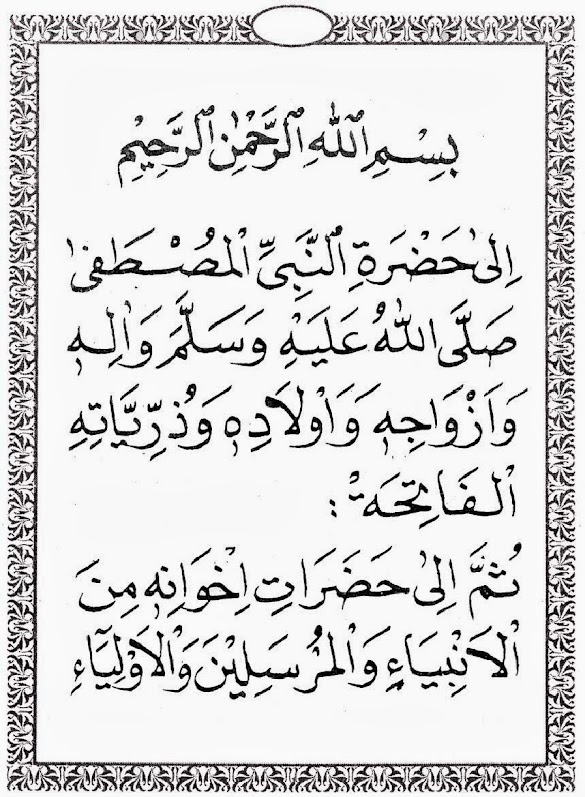 بِسْمِ اللّٰهِ الرَّحْمٰنِ الرَّحِيْمِ
اِلٰى حَضْرَةِ النَّبِيِّ الْمُصْطَفٰى
صَلَّى اللّٰهُ عَلَيْهِ وَسَلَّمَ وَاٰلِهٖ
وَاَزْوَاجِهٖ وَاَوْلَادِهٖ وَذُرِّيَّاتِهِ
الْفَاتِحَةْ :
ثُمَّ اِلٰى حَضَرَاتِ اِخْوَانِهٖ مِنَ
الْاَنْبِيَاءِ وَالْمُرْسَلِيْنَ وَالْاَوْلِيَآءِ